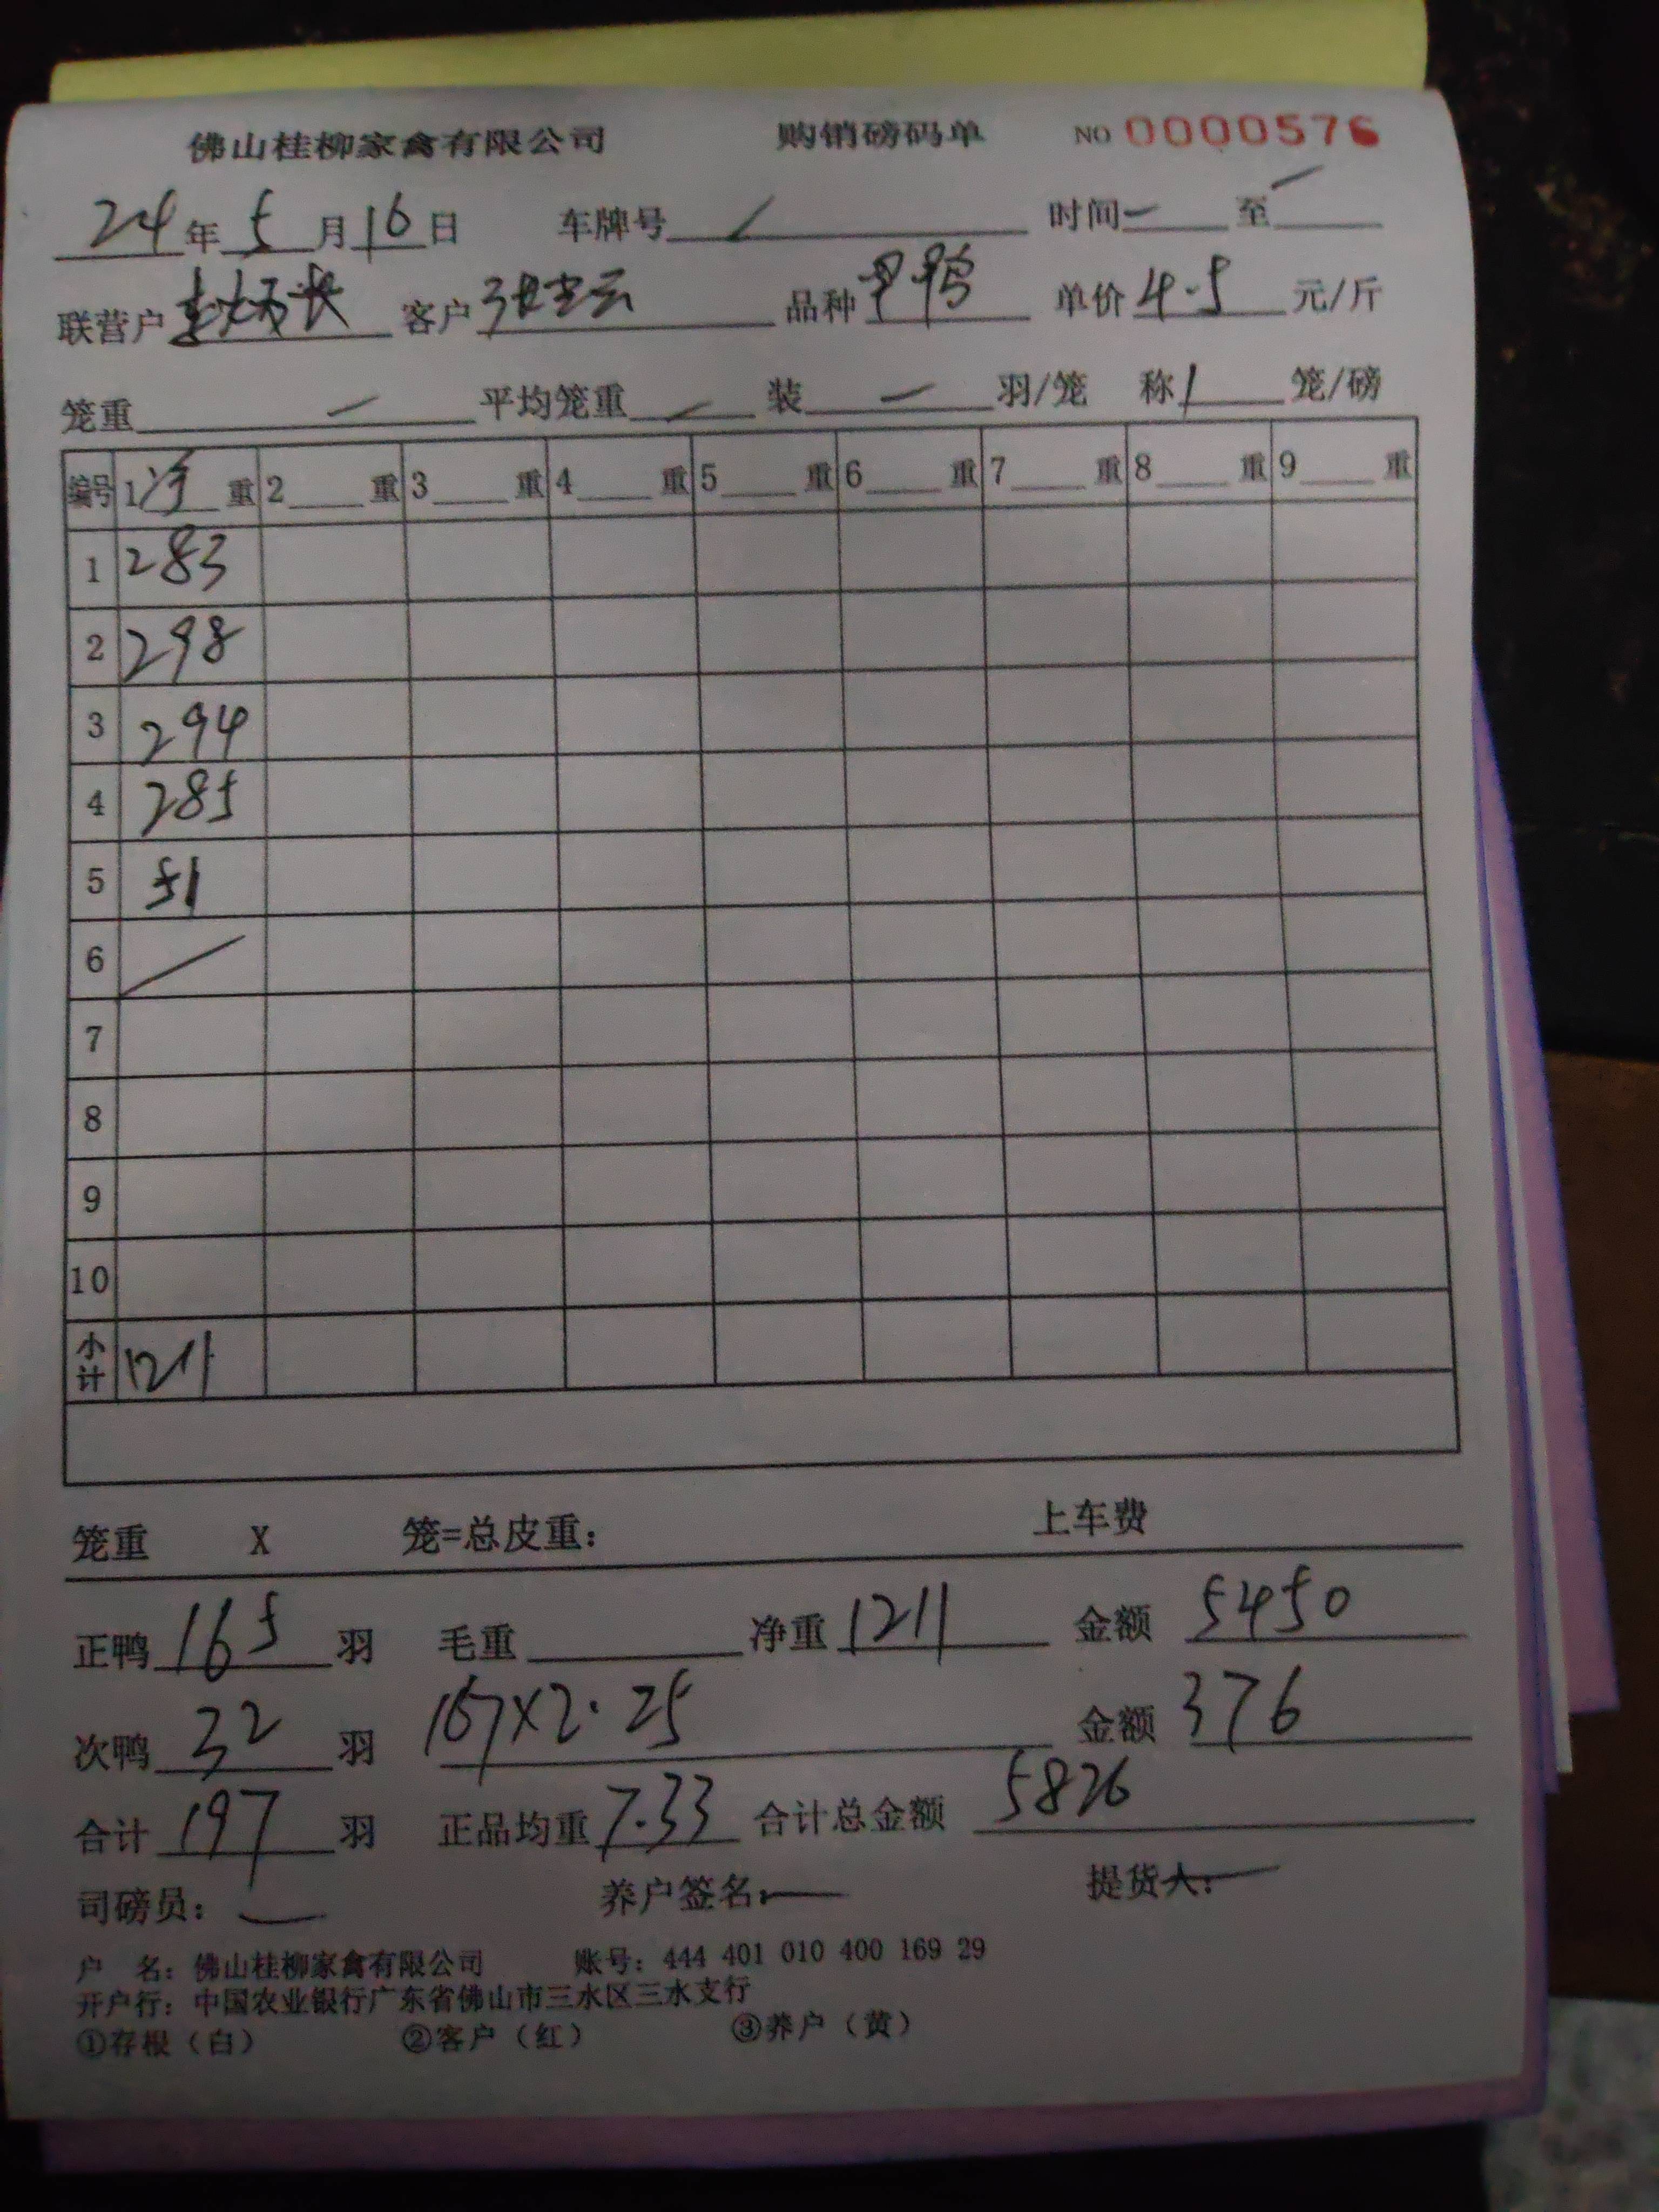 佛山桂柳家禽有限公司 购销磅码单 NO 0000576
24年5月16日 车牌号 / 时间 一 至 一
联营户 客户 张 品种 鸭 单价 4.5 元/斤
笼重 一 平均笼重 一 装 一 羽/笼 称 1 笼/磅
编号 1净重 2 重 3 重 4 重 5 重 6 重 7 重 8 重 9 重
1 283
2 298
3 294
4 285
5 51
6 /
7
8
9
10
小计 1211
笼重 X 笼=总皮重: 上车费
正鸭 165 羽 毛重 净重 1211 金额 5450
次鸭 32 羽 167×2.25 金额 376
合计 197 羽 正品均重 7.33 合计总金额 5826
司磅员: 一 养户签名: 一 提货人: 一
户 名: 佛山桂柳家禽有限公司 账号: 444 401 010 400 169 29
开户行: 中国农业银行广东省佛山市三水区三水支行
①存根(白) ②客户(红) ③养户(黄)